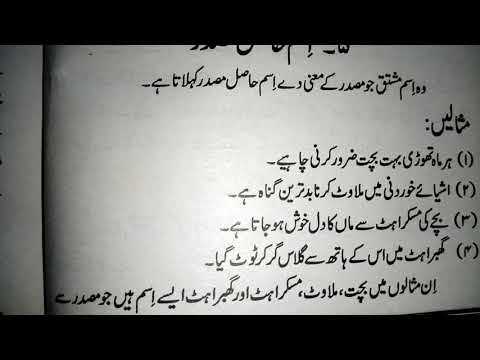 ۵۔ اِسم حاصل مصدر
وہ اِسم مشتق جو مصدر کے معنی دے اِسم حاصل مصدر کہلاتا ہے۔
مثالیں:
(۱) ہر ماہ تھوڑی بہت بچت ضرور کرنی چاہیے۔
(۲) اشیائے خوردنی میں ملاوٹ کرنا بدترین گناہ ہے۔
(۳) بچے کی مسکراہٹ سے ماں کا دل خوش ہو جاتا ہے۔
(۴) گھبراہٹ میں اس کے ہاتھ سے گلاس گر کر ٹوٹ گیا۔
اِن مثالوں میں بچت، ملاوٹ، مسکراہٹ اور گھبراہٹ ایسے اِسم ہیں جو مصدر سے